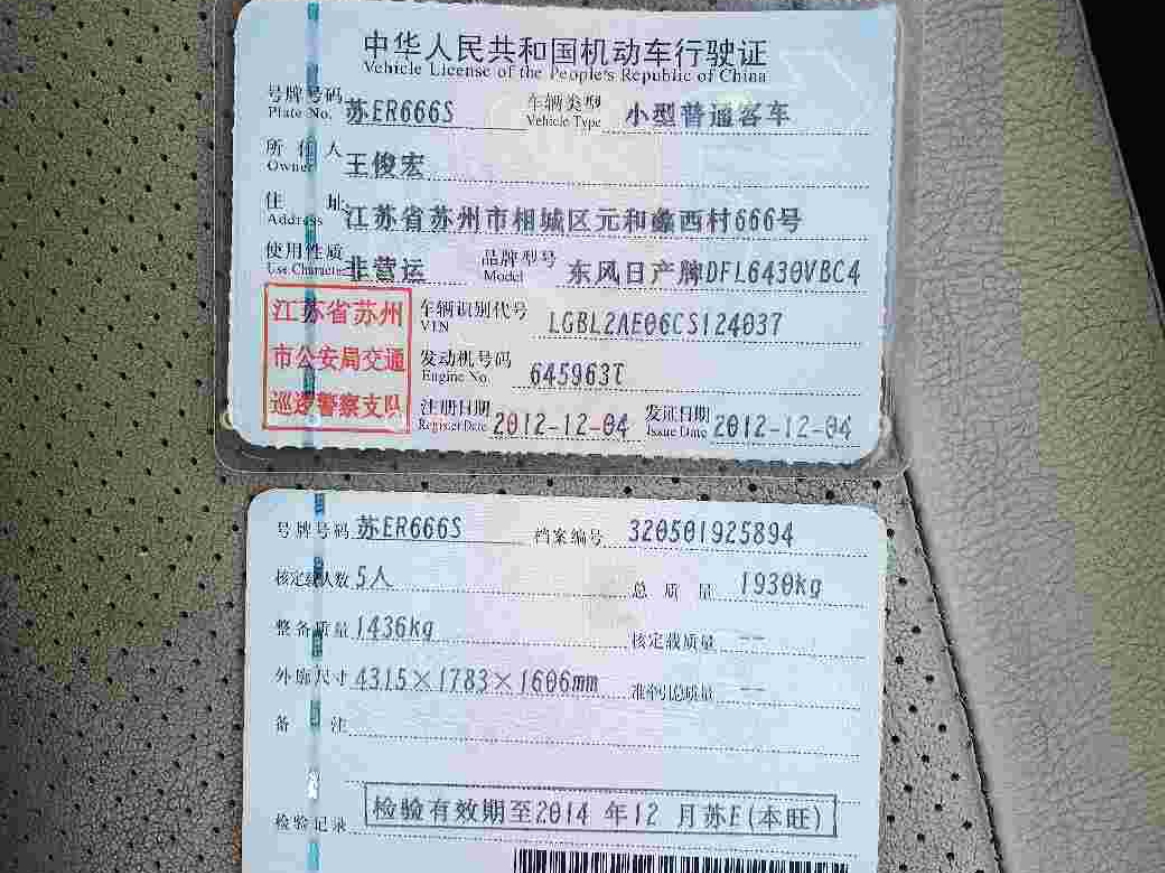 中华人民共和国机动车行驶证
Vehicle License of the People's Republic of China
号牌号码 苏ER666S 车辆类型 小型普通客车
Plate No. Vehicle Type
所有人 王俊宏
Owner
住址 江苏省苏州市相城区元和蠡西村666号
Address
使用性质 非营运 品牌型号 东风日产牌DFL6430VBC4
Use Character Model
江苏省苏州
市公安局交通
巡逻警察支队
车辆识别代号 LGBL2AE06CS124037
VIN
发动机号码 645963T
Engine No.
注册日期 2012-12-04 发证日期 2012-12-04
Register Date Issue Date
号牌号码 苏ER666S 档案编号 320501925894
核定载人数 5人 总质量 1930kg
整备质量 1436kg 核定载质量 --
外廓尺寸 4315×1783×1606mm 准牵引总质量 --
备注
检验记录 检验有效期至2014 年12 月苏E(本旺)